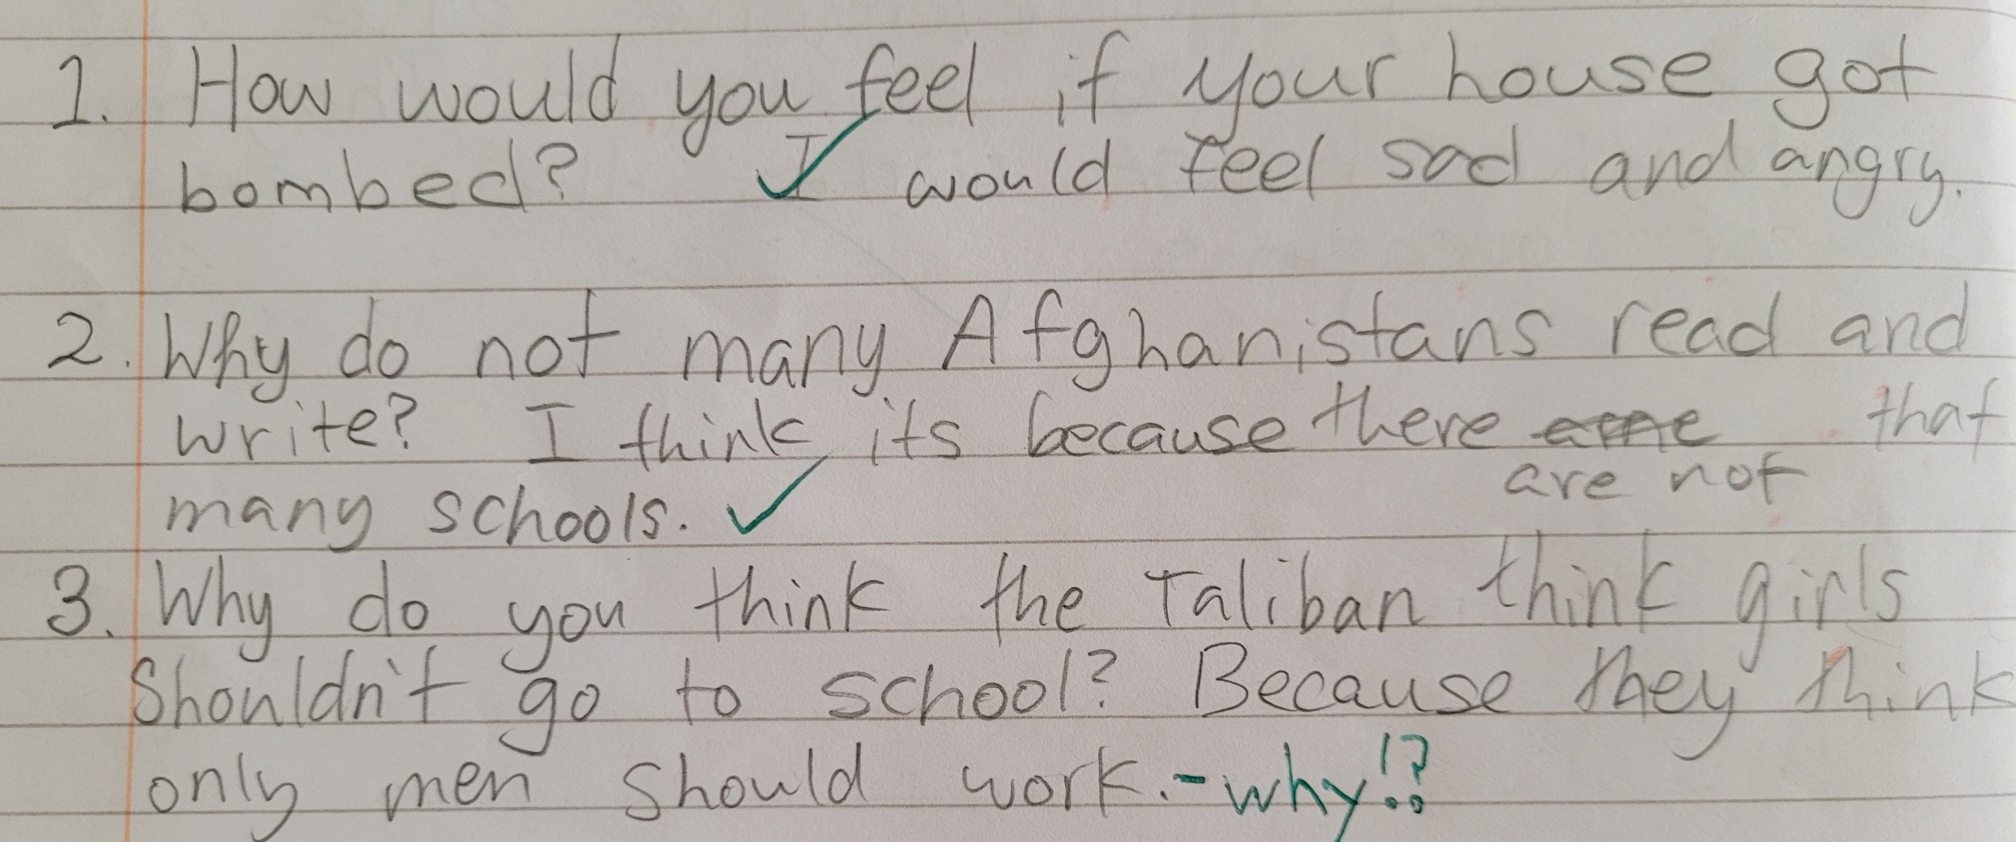 1. How would you feel if your house got
bombed? I would feel sad and angry.
2. Why do not many Afghanistans read and
write? I think its because there that
are not
many schools.
3. Why do you think the Taliban think girls
Shouldn't go to school? Because they think
only men should work. - why!?